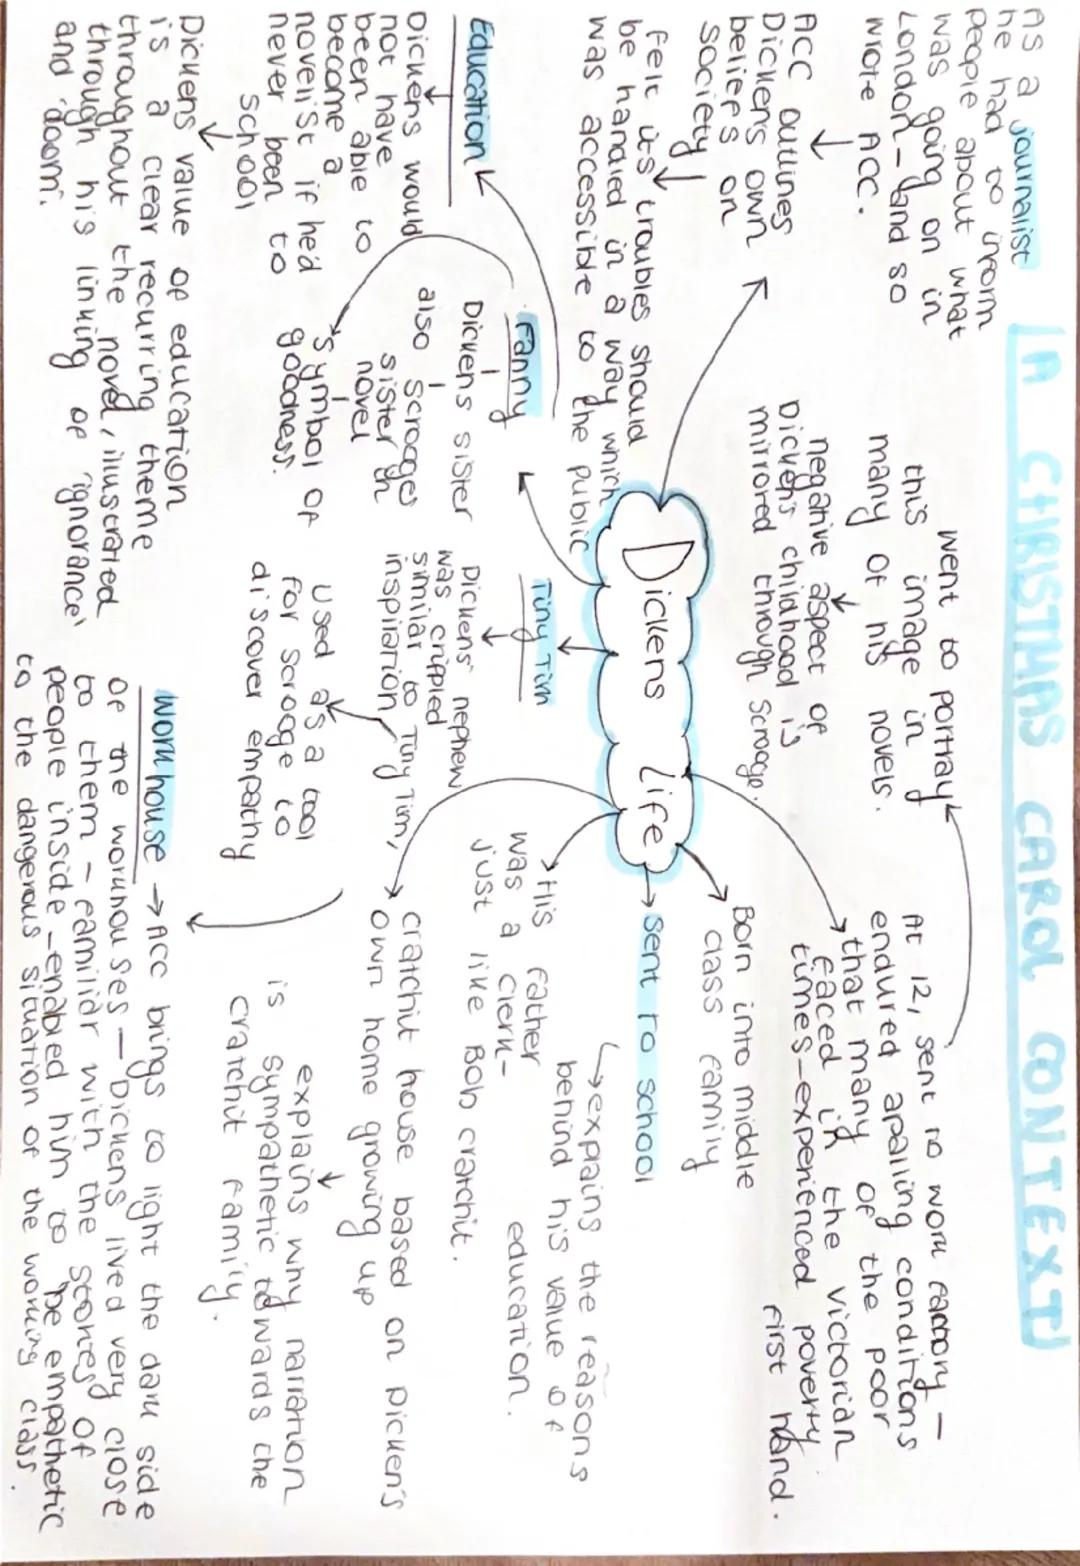 A CHRISTMAS CAROL CONTEXT
As a journalist
he had to inform
people about what
was going on in
London - and so
wrote ACC.
ACC outlines
Dickens own
beliefs on
society
felt its troubles should
be handled in a way which
was accessible to the public
went to portray
this image in
many of his novels.
negative aspect of
Dicken's childhood is
mirrored through Scrooge.
At 12, sent to work factory -
endured apalling conditions
that many of the poor
faced in the victorian
times - experienced poverty
first hand.
Dickens Life
Born into middle
class family
sent to school
explains the reasons
behind his value of
education.
His father
was a clerk -
just like Bob cratchit.
cratchit house based on Dicken's
own home growing up
explains why narration
is sympathetic towards the
cratchit family.
Education
Dickens would
not have
been able to
become a
novelist if he'd
never been to
school
Dickens value of education
is a clear recurring theme
throughout the novel, illustrated
through his linking of 'ignorance'
and 'doom'.
Fanny
Dickens sister
also scrooges
sister in
novel
symbol of
goodness.
Tiny Tim
Dickens' nephew
was crippled
similar to Tiny Tim,
inspiration
used as a tool
for scrooge to
discover empathy
workhouse → ACC brings to light the dark side
of the workhouses - Dickens lived very close
to them - familiar with the stories of
people inside - enabled him to be empathetic
to the dangerous situation of the working class.